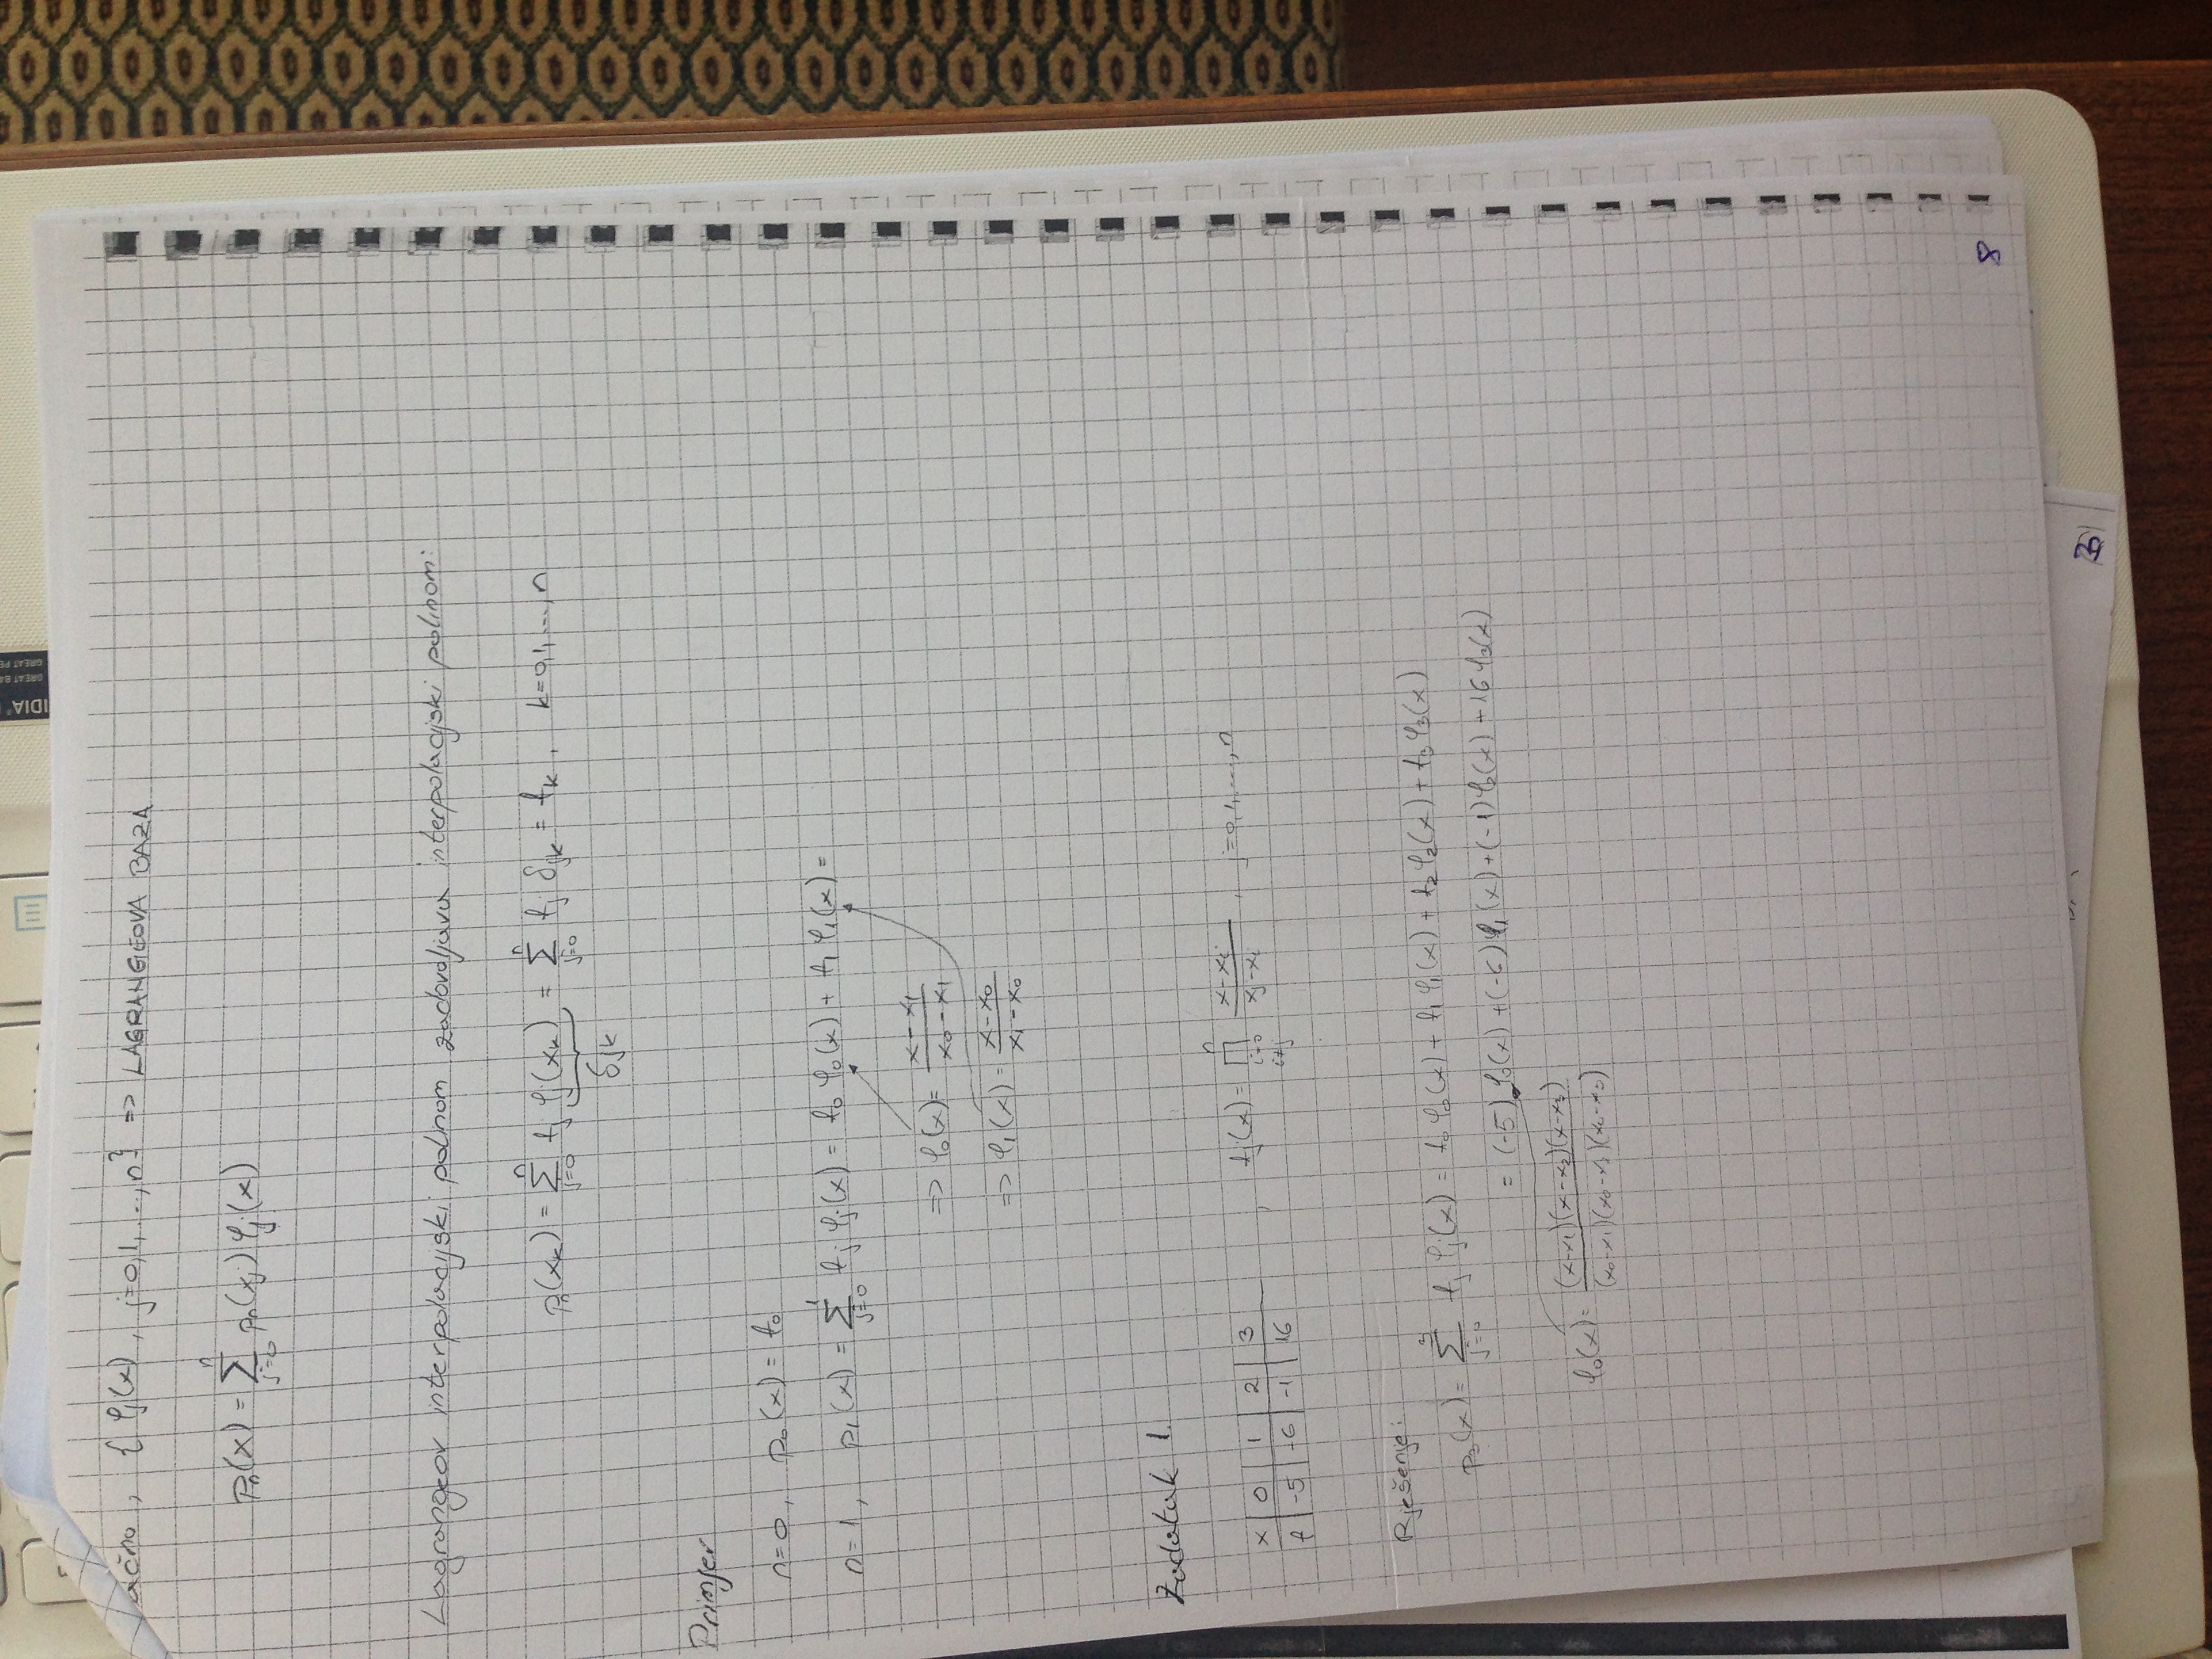 , { φj(x), j=0,1,...,n} => LAGRANGEOVA BAZA
pn(x) = Σ_{j=0}^{n} pn(xj) φj(x)
Lagrangeov interpolacijski polinom zadovoljava interpolacijski polinom:
pn(xk) = Σ_{j=0}^{n} fj φj(xk) = Σ_{j=0}^{n} fj δjk = fk, k=0,1,...,n
δjk
Primjer
n=0, p0(x) = f0
n=1, p1(x) = Σ_{j=0}^{1} fj φj(x) = f0 φ0(x) + f1 φ1(x) =
=> φ0(x) = (x-x1)/(x0-x1)
=> φ1(x) = (x-x0)/(x1-x0)
Zadatak 1.
x | 0 | 1 | 2 | 3
f | -5 | -6 | -1 | 16
, fj(x) = Π_{i=0, i≠j}^{n} (x-xi)/(xj-xi), j=0,1,...,n
Rješenje:
p3(x) = Σ_{j=0}^{3} fj φj(x) = f0 φ0(x) + f1 φ1(x) + f2 φ2(x) + f3 φ3(x)
= (-5) φ0(x) + (-6) φ1(x) + (-1) φ2(x) + 16 φ3(x)
φ0(x) = (x-x1)(x-x2)(x-x3)/(x0-x1)(x0-x2)(x0-x3)
8
IDIA
GREAT
GREAT